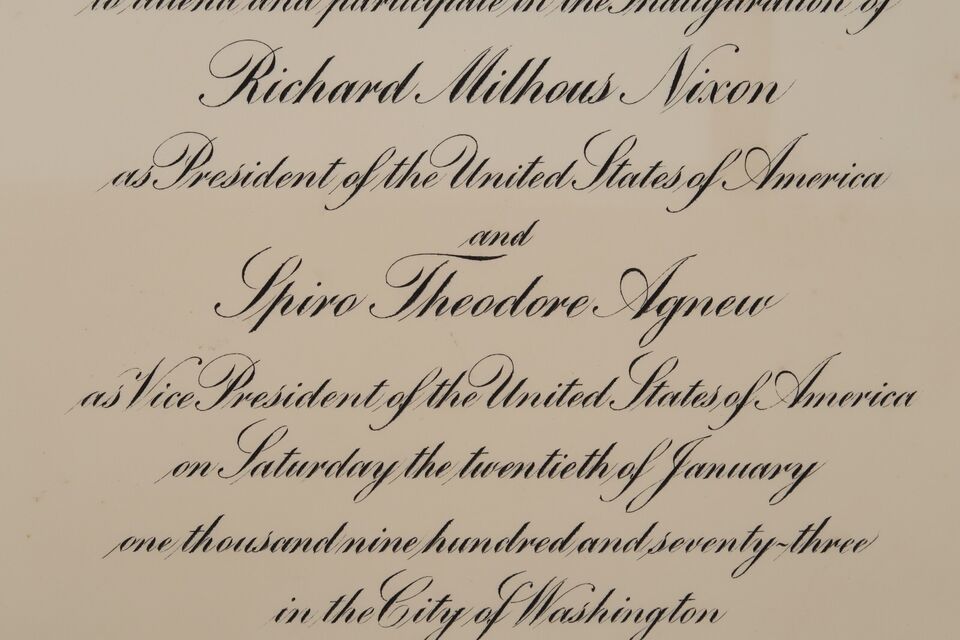 to attend and participate in the Inauguration of
Richard Milhous Nixon
as President of the United States of America
and
Spiro Theodore Agnew
as Vice President of the United States of America
on Saturday the twentieth of January
one thousand nine hundred and seventy~three
in the City of Washington